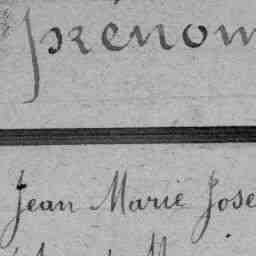 prénom
Jean Marie Jose